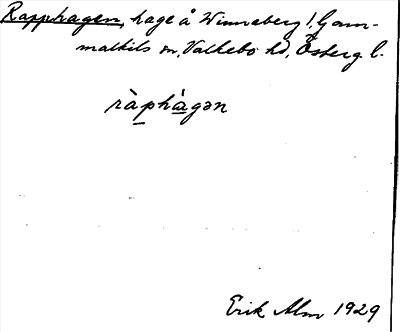 Rapphagen, hage å Winneberg, Gam-
malkils sn, Valkebo hd, Österg. l.
ràphàgən
Erik Alm 1929